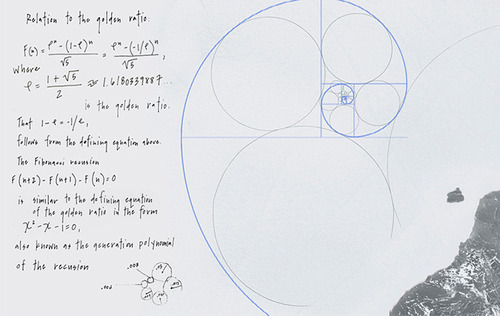 Relation to the golden ratio:
F(n) = φⁿ-(1-φ)ⁿ / √5 = φⁿ-(-1/φ)ⁿ / √5 ,
where
φ = 1 + √5 / 2 ≈ 1.6180339887...
is the golden ratio.
That 1-φ = -1/φ,
follows from the defining equation above.
The Fibonacci recusion
F(n+2)-F(n+1)-F(n)=0
is similar to the defining equation
of the golden ratio in the form
x²-x-1=0,
also known as the generation polynomial
of the recusion
.003
.002